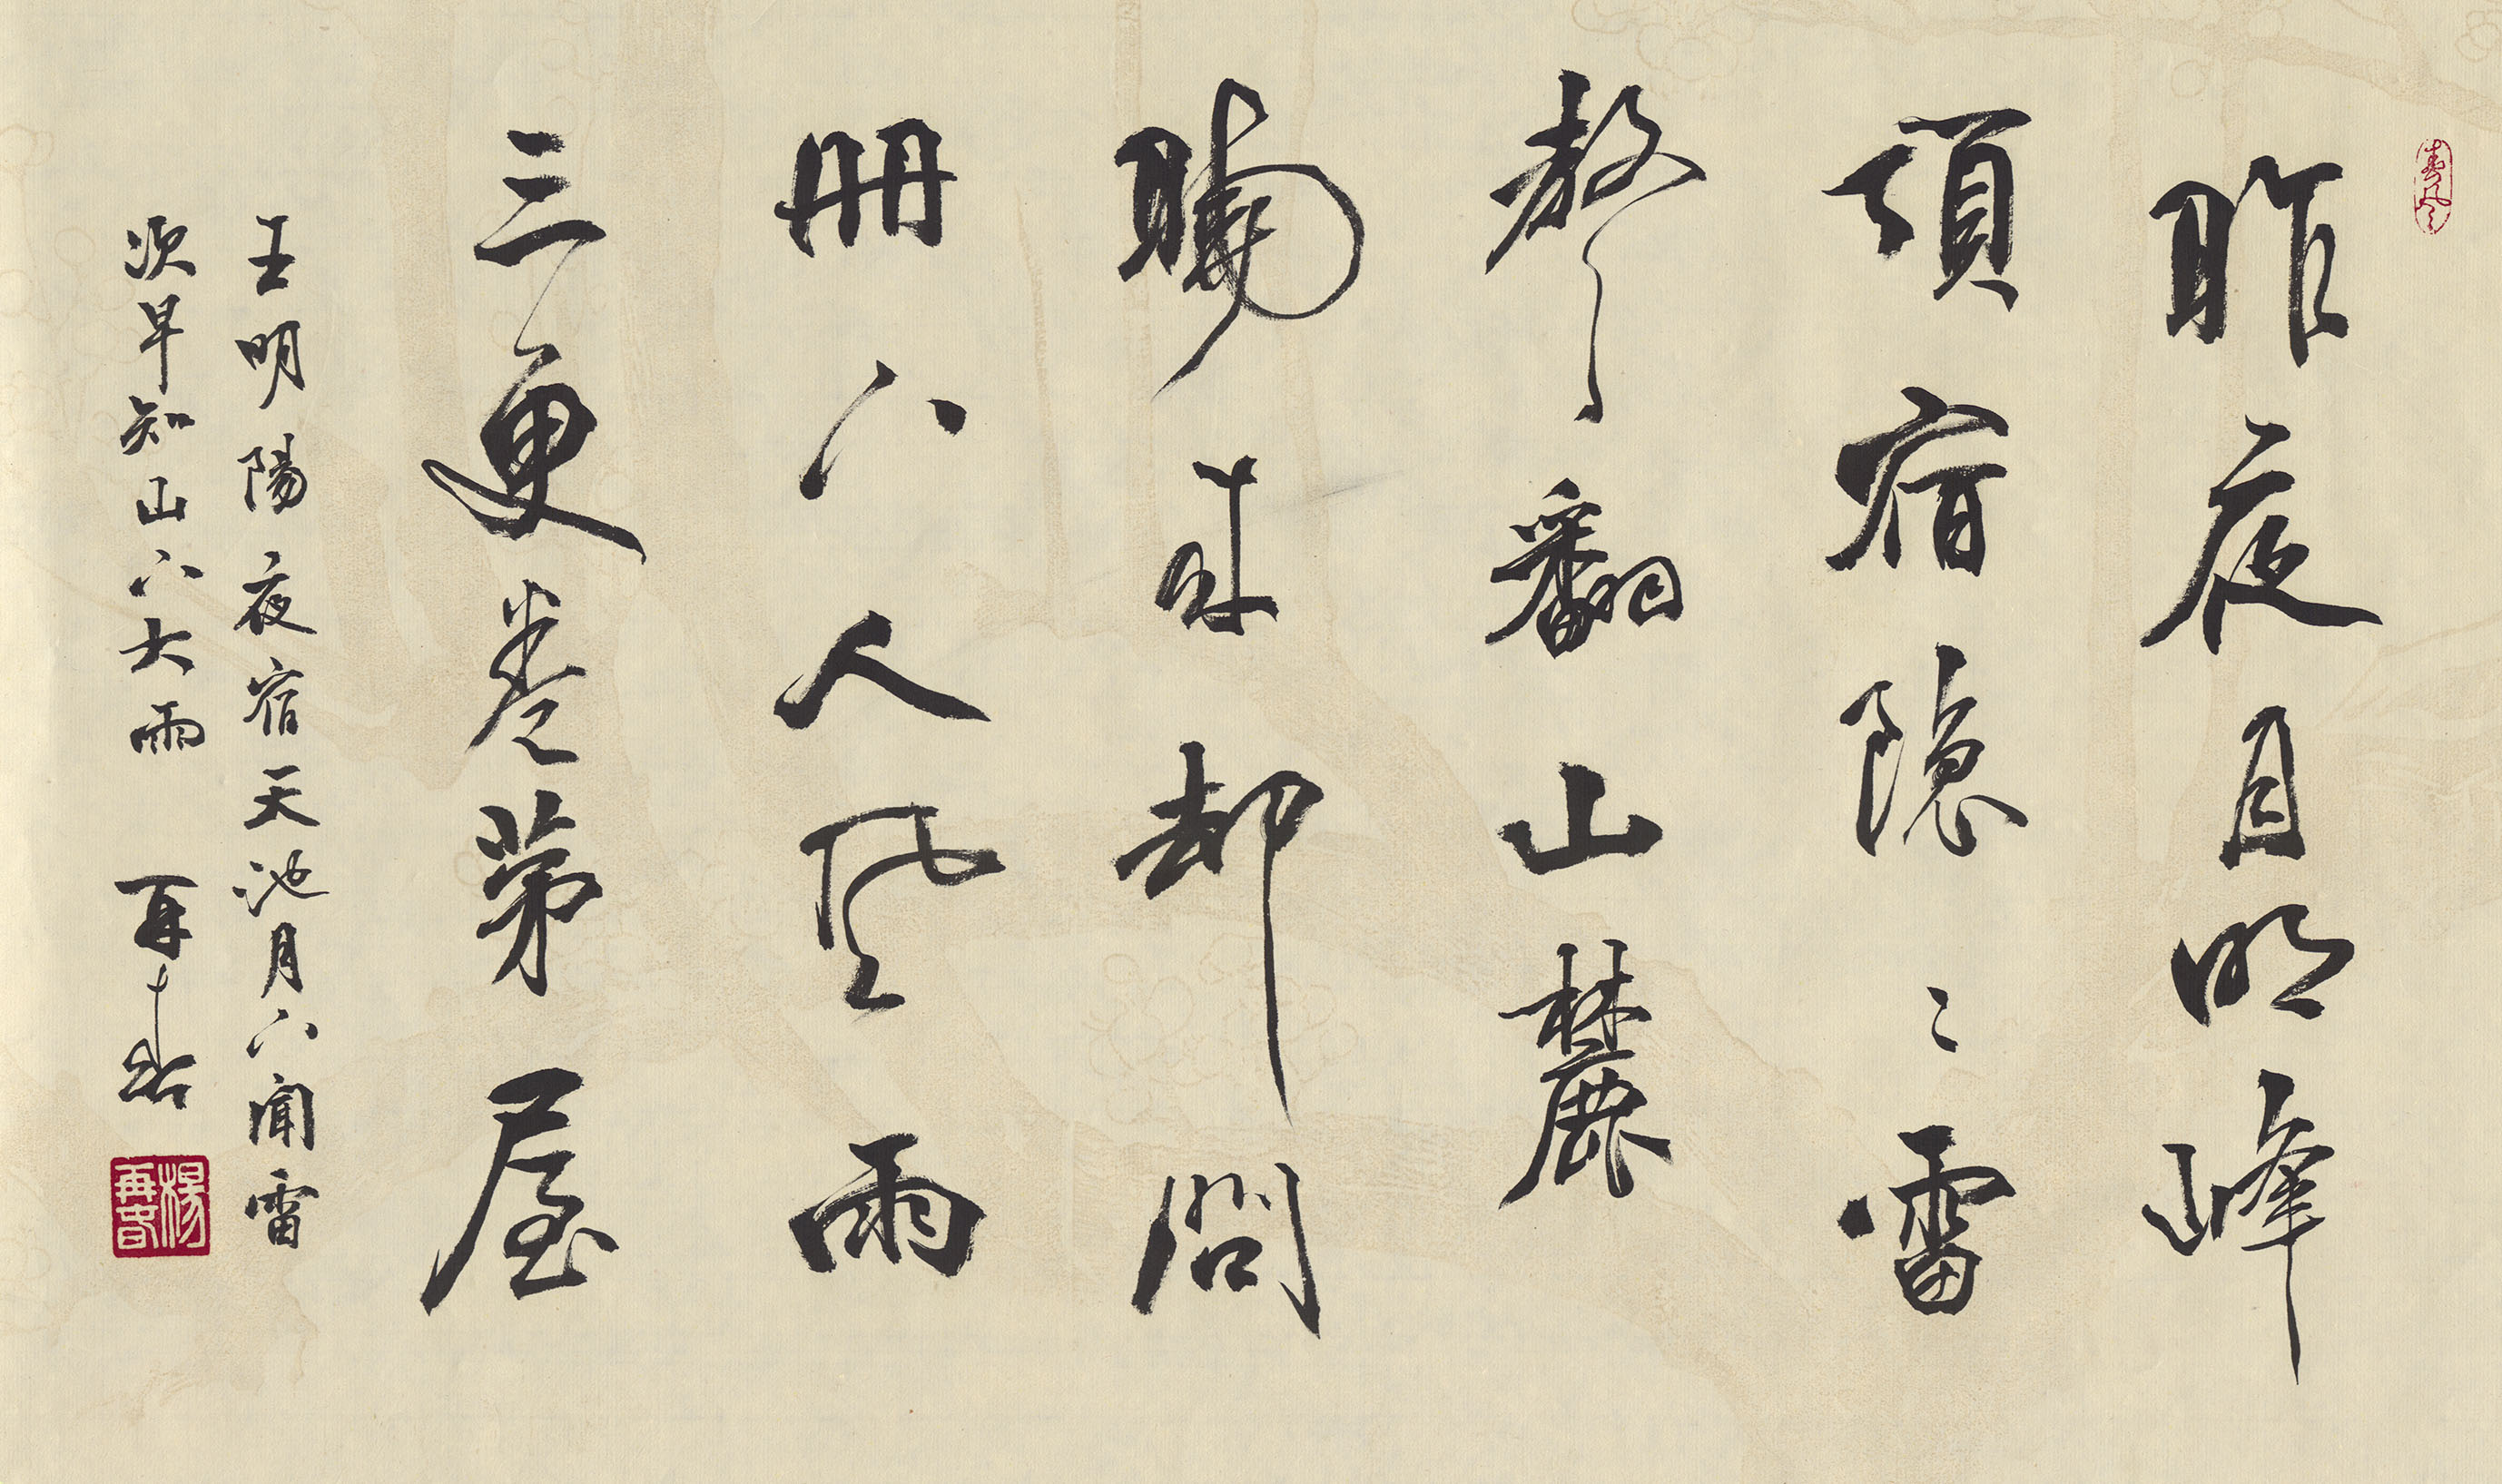 春風
昨夜月明峰
頂宿隱〻雷
聲翻山麓
曉来却問
冊下人風雨
三更卷茅屋
王明陽夜宿天池月下聞雷
次早知山下大雨 再春
楊再春